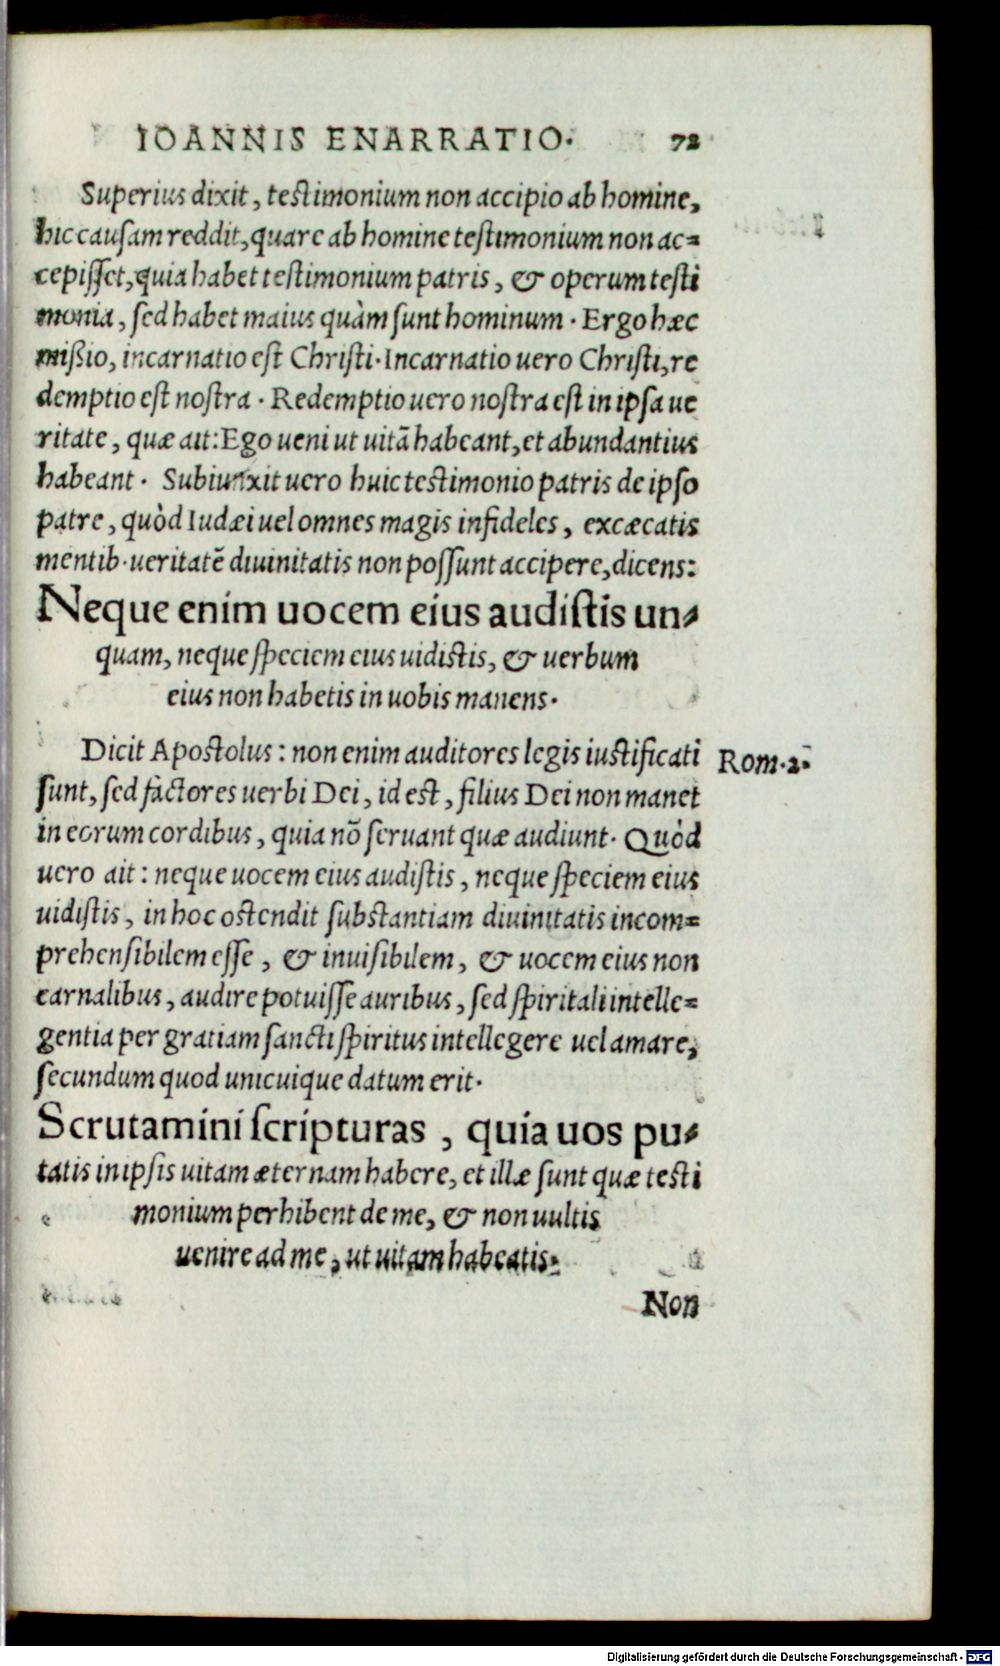 IOANNIS ENARRATIO. 72
Superius dixit, testimonium non accipio ab homine,
hic causam reddit, quare ab homine testimonium non ac=
cepisset, quia habet testimonium patris, & operum testi
monia, sed habet maius quàm sunt hominum. Ergo hæc
mißio, incarnatio est Christi. Incarnatio uero Christi, re
demptio est nostra. Redemptio uero nostra est in ipsa ue
ritate, quæ ait: Ego ueni ut uitã habeant, et abundantius
habeant. Subiunxit uero huic testimonio patris de ipso
patre, quòd Iudæi uel omnes magis infideles, excæcatis
mentib. ueritatẽ diuinitatis non possunt accipere, dicens:
Neque enim uocem eius audistis un=
quam, neque speciem eius uidistis, & uerbum
eius non habetis in uobis manens.
Dicit Apostolus: non enim auditores legis iustificati
Rom. 2.
sunt, sed factores uerbi Dei, id est, filius Dei non manet
in eorum cordibus, quia nõ seruant quæ audiunt. Quòd
uero ait: neque uocem eius audistis, neque speciem eius
uidistis, in hoc ostendit substantiam diuinitatis incom=
prehensibilem esse, & inuisibilem, & uocem eius non
carnalibus, audire potuisse auribus, sed spiritali intelle=
gentia per gratiam sancti spiritus intellegere uel amare,
secundum quod unicuique datum erit.
Scrutamini scripturas, quia uos pu=
tatis in ipsis uitam æternam habere, et illæ sunt quæ testi
monium perhibent de me, & non uultis
uenire ad me, ut uitam habeatis.
Non
Digitalisierung gefördert durch die Deutsche Forschungsgemeinschaft - DFG